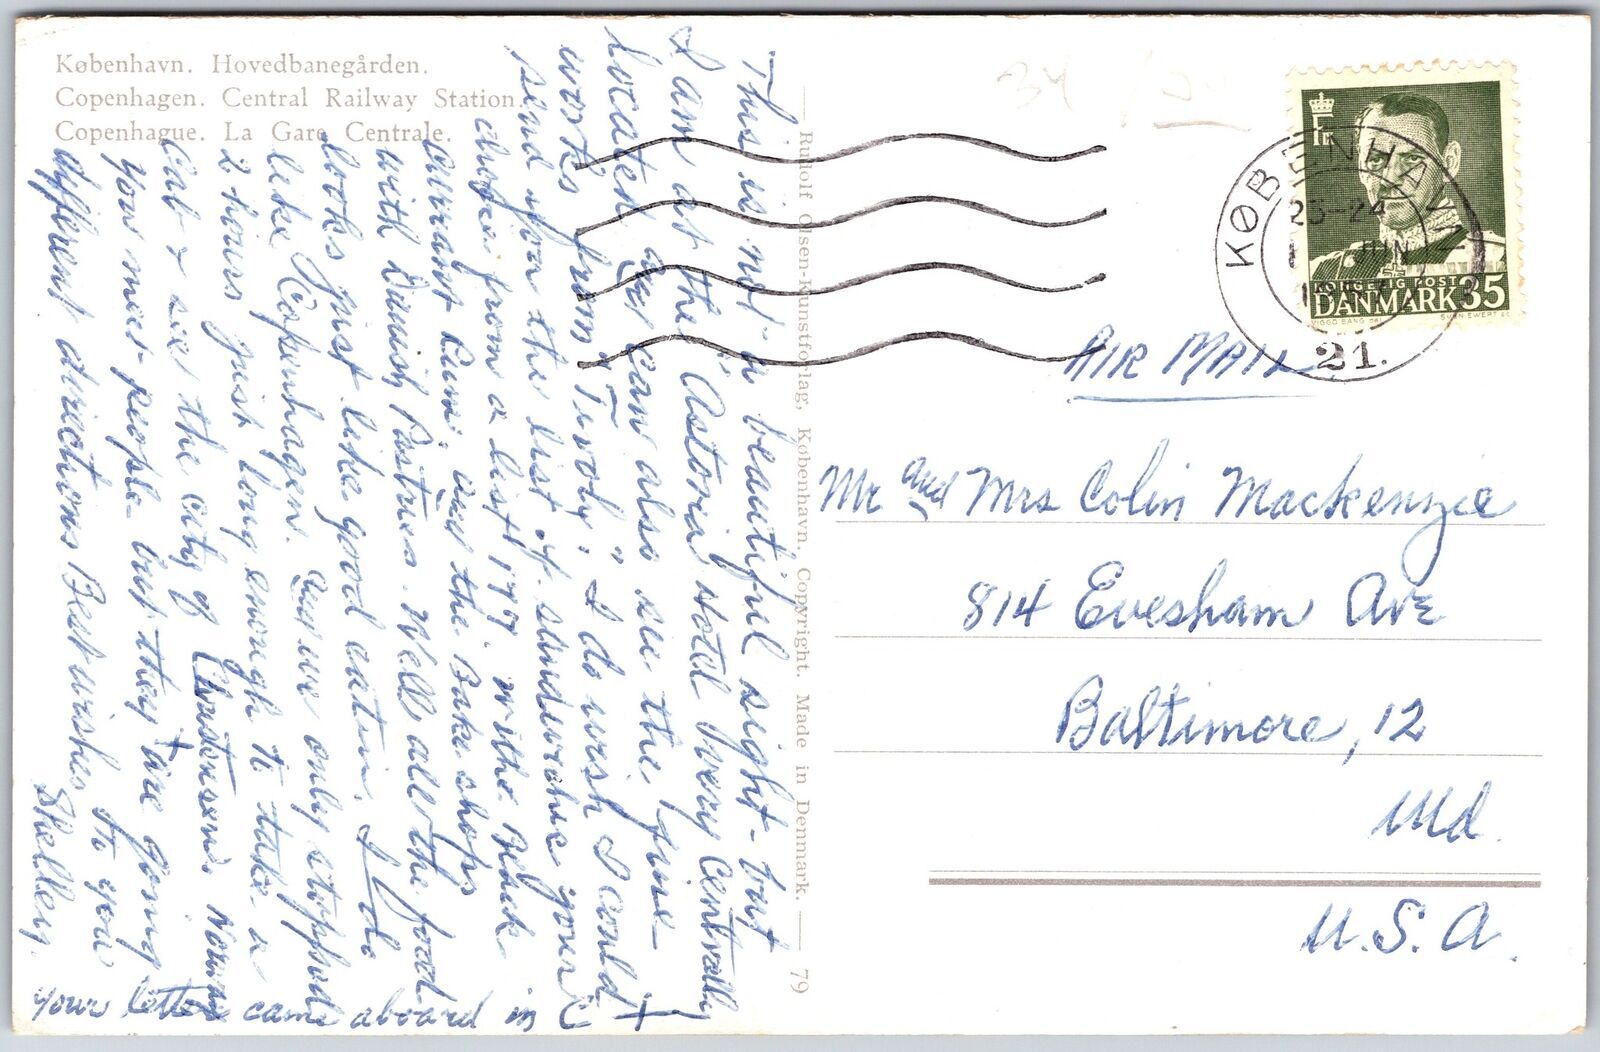 København. Hovedbanegården.
Copenhagen. Central Railway Station.
Copenhague. La Gare Centrale.
This is not a beautiful sight - but
I am at the "Astoria Hotel" very Centrally
located and can also see the fire-
works from "Tivoli." I do wish I could
send you the list of sandwiches you
choose from a list 177 with Black
Currant Rum, and the Bake shops
with Danish Pastries. Well all the food
looks just like good eatin. I do
like Copenhagen. and we only stopped
2 hours just long enough to take a
Cab & see the city of Christensen. Norway
You meet people - but they are going
different directions Best wishes to you
Shelley.
your letter came aboard in C
Rudolf Olsen-Kunstforlag, København. Copyright. Made in Denmark. 79
KØBENHAVN
23-24
JUN
21.
DANMARK 35
VIGGO BANG del.
SVEN EWERT sc
AIR MAIL
Mr and Mrs Colin Mackenzie
814 Evesham Ave
Baltimore, 12
Md.
U.S.A.